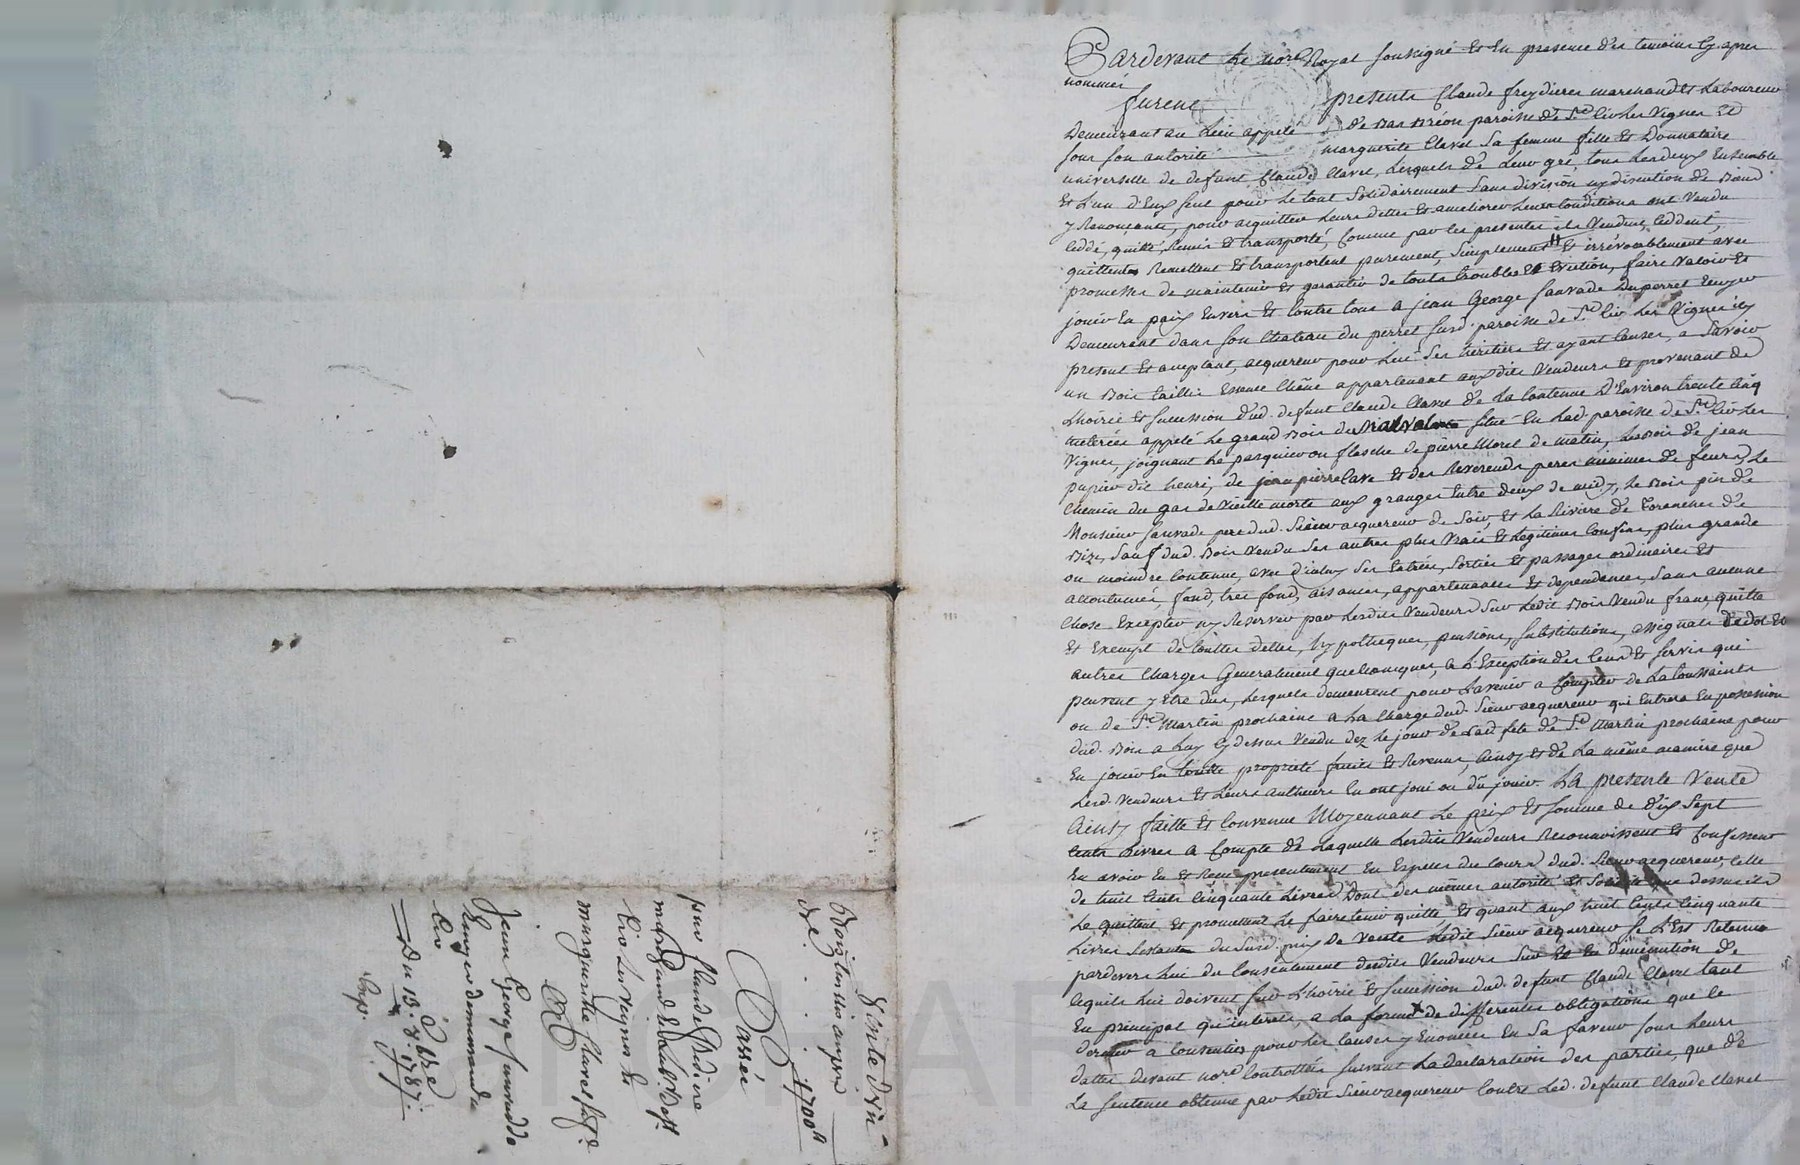 Pardevant Le no.re Royal soussigné Et En presence des temoins Cy apres
nommés
furent presents Claude freydiere marchand Et Laboureur
Demeurant au Lieu appelé de paroisse de St. Cir Les Vignes Et
sous son autorité marguerite Clavel Sa femme fille Et Donnataire
universelle de defunt Claude Clavel, Lesquels de Leur gré, tous Les deux Ensemble
Et L'un d'Eux seul pour Le tout Solidairement Sans division ny discution de
y Renonceants, pour acquitter Leurs dettes Et ameliorer Leurs Conditions ont Vendu
Ceddé, quitté, Remis Et transporté, Comme par Les presentes ils Vendent, Ceddent,
quittent Remettent Et transportent purement, Simplement Et irrévocablement avec
promesses de maintenir Et garantir de touts troubles Et Eviction, faire Valoir Et
jouir En paix Envers Et Contre tous a jean George Sauvade Duperret
Demeurant dans son Chateau du perret susd. paroisse de St. Cir Les Vignes icy
present Et acceptant, acquereur pour Lui Ses heritiers Et ayant Causes, a Savoir
un Bois taillis Essence Chêne appartenant aux dits Vendeurs Et provenant de
Lhoirie Et succession dud. defunt Claude Clavel de La Contenue D'Environ trente Cinq
meterées appelé Le grand Bois de situé En Lad. paroisse de St. Cir Les
Vignes, joignant Le pasquier ou flasche de pierre Morel de matin, Les Bois de jean
papin dit henri, de jean pierre Lare Et des Reverends peres minimes de feurs, Le
Chemin du gas de Vieille morte aux granges Entre deux de midy, Le Bois pin de
Monsieur Sauvade pere dud. Sieur acquereur de Soir, Et La Riviere de Toranches de
Bize, Sauf dud. Bois Vendu Ses autres plus Vrais Et Legitimes Confins, plus grande
ou moindre Contenue, avec D'icelui Ses Entrées, Sorties Et passages ordinaires Et
accoutumés, fond, tres fond, aisances, appartenances Et dependances, Sans aucune
Chose Excepter ny Reserver par Lesdits Vendeurs Sur Ledit Bois Vendu franc, quitte
Et Exempt de touttes dettes, hypotheques, pensions, substitutions, assignats de dot Et
autres Charges Generalement quelconques, a L'Exception des Cens Et servis qui
peuvent y Etre dus, Lesquels demeurent pour Lavenir a Compter de La toussaints
ou de St. Martin prochaine a La Charge dud. Sieur acquereur qui Entrera En possession
dud. Bois a Luy Cy dessus Vendu dez Le jour de Lad. fete de St. Martin prochaine pour
En jouir En toutte proprieté fruits Et Revenus, ainsy Et de La même maniere que
Lesd. Vendeurs Et Leurs autheurs En ont joui ou dû jouir. La presente Vente
ainsy faitte Et Convenue Moyennant Le prix Et somme de dix Sept
Cents Livres a Compte de Laquelle Lesdits Vendeurs Reconnoissent Et Confessent
En avoir Eu Et Recu presentement En Especes du Cours dud. Sieur acquereur, Celle
de huit Cents Cinquante Livres Dont des mêmes autorité Et Solidité que dessus ils
Le quittent Et promettent Le faire tenir quitte Et quant aux huit Cents Cinquante
Livres Restantes du Susd. prix De Vente Ledit Sieur acquereur Se L'Est Retenue
pardevers Lui du Consentement desdits Vendeurs Sur Et En diminution de
Ce quils Lui doivent Sur L'hoirie Et succession dud. defunt Claude Clavel tant
En principal qu'interets, a La forme de differentes obligations que Ce
dernier a Consenties pour Les Causes y Enoncées En Sa faveur sous Leurs
dattes devant no.res Controllées suivant La declaration des parties, que de
La sentence obtenue par Ledit Sieur acquereur Contre Led. defunt Claude Clavel
Vente d'un
Bois taillis
de . . . . 1700 lt
Passée
par Claude frediere
marchand
Cir Les Vignes Et
marguerite Clavel
à
Jean George Sauvade
demeurant a
Cir
= Du 13. 8bre 1787.
Exp.